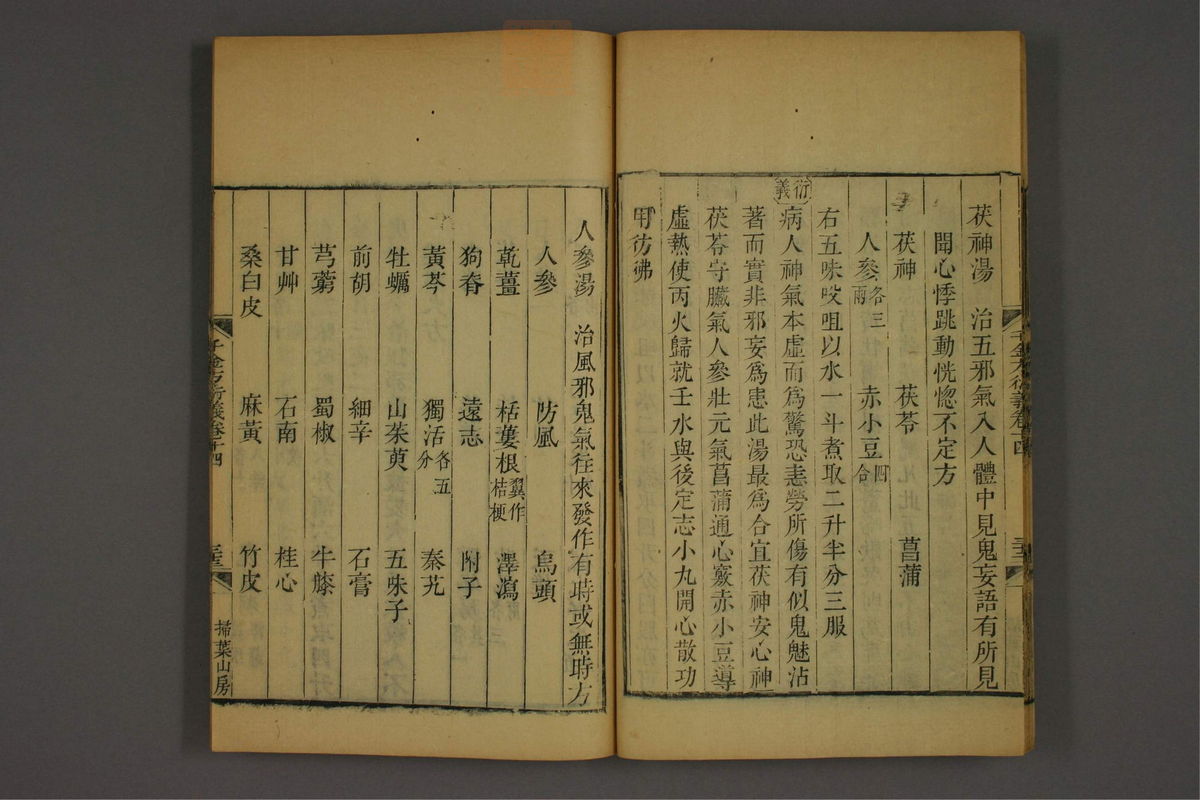 茯神湯　治五邪氣入人體中見鬼妄語有所見
聞心悸跳動恍惚不定方
茯神　茯苓　菖蒲
人參各三兩　赤小豆四合
右五味㕮咀以水一斗煮取二升半分三服
衍義
病人神氣本虛而為驚恐恚勞所傷有似鬼魅沾
著而實非邪妄為患此湯最為合宜茯神安心神
茯苓守臟氣人參壯元氣菖蒲通心竅赤小豆導
虛熱使丙火歸就壬水與後定志小丸開心散功
用彷彿
千金方衍義卷十四
人參湯　治風邪鬼氣往來發作有時或無時方
人參　防風　烏頭
乾薑　栝蔞根翼作桔梗　澤瀉
狗脊　遠志　附子
黃芩　獨活各五分　秦艽
牡蠣　山茱萸　五味子
前胡　細辛　石膏
芎藭　蜀椒　牛膝
甘艸　石南　桂心
桑白皮　麻黃　竹皮
千金方衍義卷十四
掃葉山房